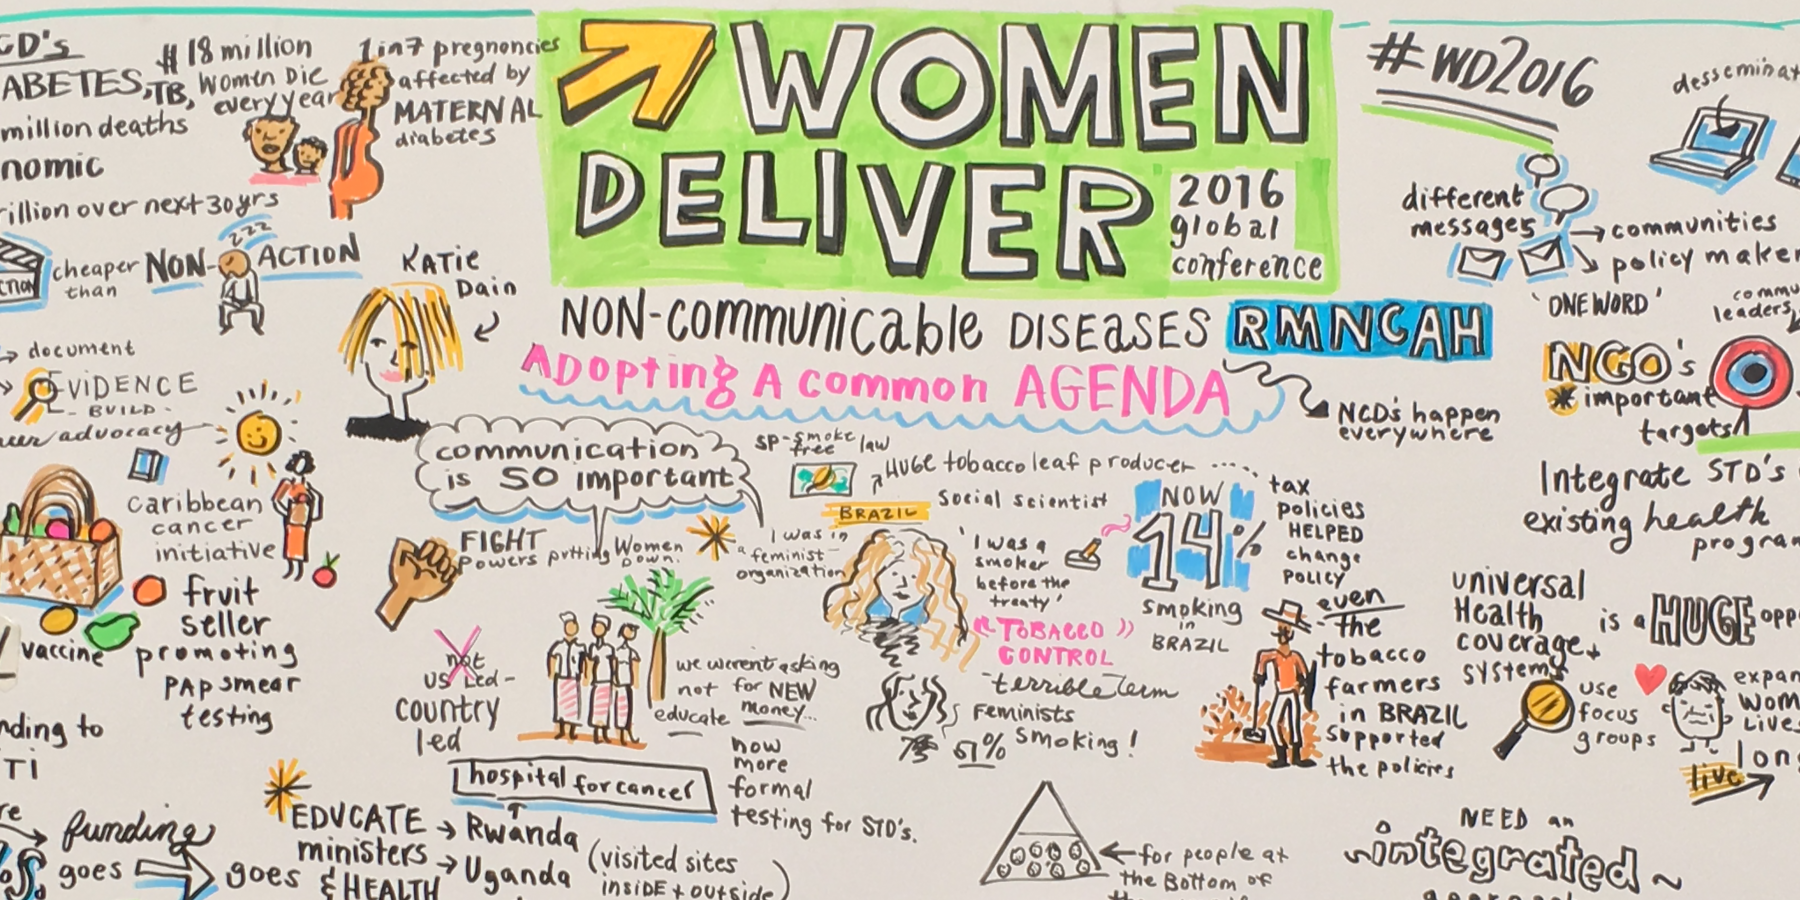 WOMEN
DELIVER
2016
global
conference
NON-communicable DISEASES RMNCAH
Adopting A common AGENDA
NCD's happen
everywhere
#WD2016
ABETES, TB,
million deaths
nomic
rillion over next 30 yrs
# 18 million
Women Die
every year
1 in 7 pregnancies
affected by
MATERNAL
diabetes
cheaper
than
NON-ACTION
zzz
KATIE
Dain
document
EVIDENCE
- BUILD -
advocacy
caribbean
cancer
initiative
fruit
seller
promoting
PAP smear
testing
vaccine
nding to
TI
funding
goes
goes
EDUCATE
ministers
& HEALTH
Rwanda
Uganda
(visited sites
inside + outside)
communication
is SO important
FIGHT
Powers putting Women
Down.
not
US Led-
country
led
hospital for cancer
we weren't asking
not for NEW
educate money...
now
more
formal
testing for STD's.
SP-smoke
free law
HUGE tobacco leaf producer ....
Social scientist
BRAZIL
I was in
a feminist
organization
'I was a
smoker
before the
treaty'
"TOBACCO"
CONTROL
terrible term
Feminists
smoking!
NOW
14%
smoking
in
BRAZIL
tax
policies
HELPED
change
policy
even
the
tobacco
farmers
in BRAZIL
supported
the policies
for people at
the Bottom of
different
messages
communities
policy maker
desseminat
'ONE WORD'
commu
leaders
NGO's
important
targets
Integrate STD's
existing health
program
universal
Health
coverage +
systems
is a HUGE opp
use
focus
groups
expan
wom
Lives
long
live
NEED an
integrated